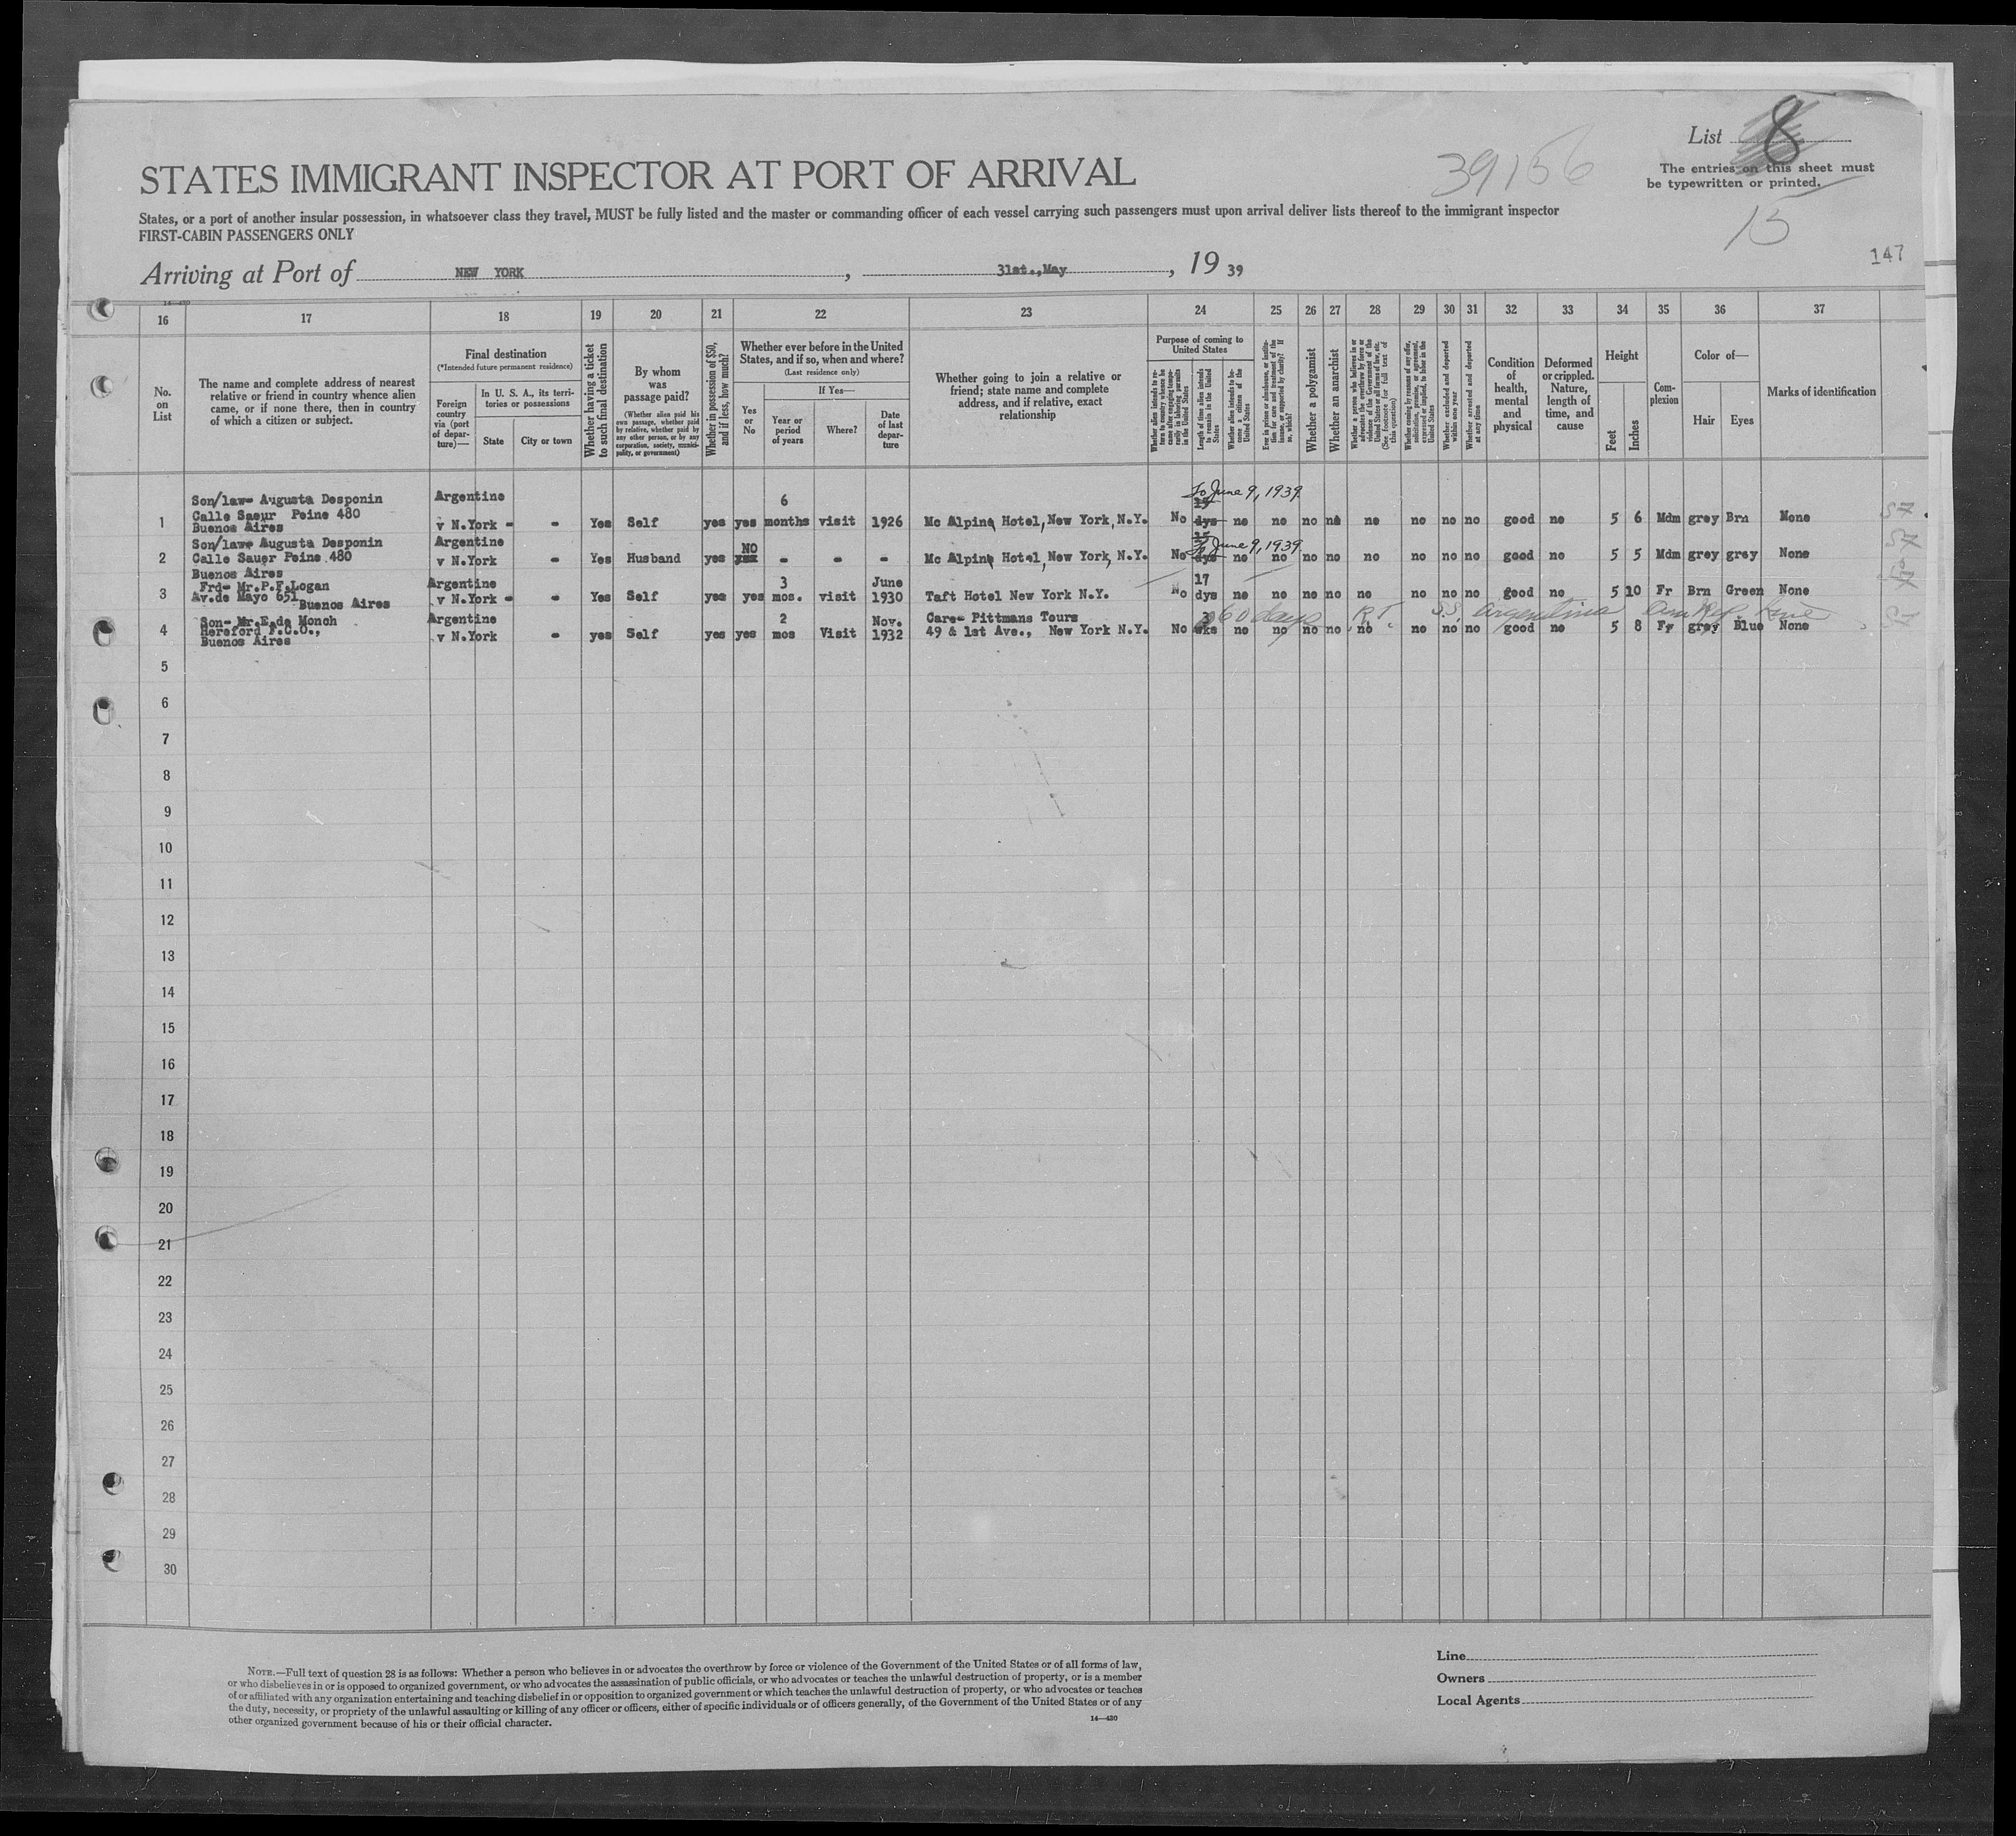 List 8
39156
The entries on this sheet must
be typewritten or printed.
15
147
STATES IMMIGRANT INSPECTOR AT PORT OF ARRIVAL
States, or a port of another insular possession, in whatsoever class they travel, MUST be fully listed and the master or commanding officer of each vessel carrying such passengers must upon arrival deliver lists thereof to the immigrant inspector
FIRST-CABIN PASSENGERS ONLY
Arriving at Port of NEW YORK, 31st.,May, 19 39
16 17 18 19 20 21 22 23 24 25 26 27 28 29 30 31 32 33 34 35 36 37
No. on List
The name and complete address of nearest
relative or friend in country whence alien
came, or if none there, then in country
of which a citizen or subject.
Final destination
(*Intended future permanent residence)
Foreign country via (port of departure)—
In U. S. A., its territories or possessions
State
City or town
Whether having a ticket to such final destination
By whom was passage paid?
(Whether alien paid his own passage, whether paid by relative, whether paid by any other person, or by any corporation, society, municipality, or government)
Whether in possession of $50, and if less, how much?
Whether ever before in the United States, and if so, when and where?
(Last residence only)
Yes or No
If Yes—
Year or period of years
Where?
Date of last departure
Whether going to join a relative or
friend; state name and complete
address, and if relative, exact
relationship
Purpose of coming to United States
Length of time alien intends to remain in the United States
Whether alien intends to become a citizen of the United States
Whether a polygamist
Whether an anarchist
Whether excluded and deported within one year
Whether arrested and deported at any time
Condition of health, mental and physical
Deformed or crippled. Nature, length of time, and cause
Height
Feet
Inches
Complexion
Color of—
Hair
Eyes
Marks of identification
Son/law- Augusta Desponin Argentine 6 To June 9, 1939.
Calle Saeur Peine 480
1 Buenos Aires v N.York - - Yes Self yes yes months visit 1926 Mc Alpine Hotel, New York, N.Y. No dys no no no no no no no no good no 5 6 Mdm grey Brn None
Son/law- Augusta Desponin Argentine NO To June 9, 1939
2 Calle Sauer Peine 480 v N.York - Yes Husband yes yes - - - Mc Alpine Hotel, New York, N.Y. No dys no no no no no no no no good no 5 5 Mdm grey grey None
Buenos Aires
Frd- Mr.P.F.Logan Argentine 3 June 17
3 Av.de Mayo 651 v N.York - - Yes Self yes yes mos. visit 1930 Taft Hotel New York N.Y. No dys no no no no no no no no good no 5 10 Fr Brn Green None
Buenos Aires
Son- Mr.E.de Monch Argentine 2 Nov. Care- Pittmans Tours 3 60 days R.T. S.S. Argentina Line
4 Hereford F.C.O., v N.York - yes Self yes yes mos Visit 1932 49 & 1st Ave., New York N.Y. No wks no no no no no no no no good no 5 8 Fr grey Blue None
Buenos Aires
5
6
7
8
9
10
11
12
13
14
15
16
17
18
19
20
21
22
23
24
25
26
27
28
29
30
NOTE.—Full text of question 28 is as follows: Whether a person who believes in or advocates the overthrow by force or violence of the Government of the United States or of all forms of law,
or who disbelieves in or is opposed to organized government, or who advocates the assassination of public officials, or who advocates or teaches the unlawful destruction of property, or is a member
of or affiliated with any organization entertaining and teaching disbelief in or opposition to organized government or which teaches the unlawful destruction of property, or who advocates or teaches
the duty, necessity, or propriety of the unlawful assaulting or killing of any officer or officers, either of specific individuals or of officers generally, of the Government of the United States or of any
other organized government because of his or their official character.
14—430
Line
Owners
Local Agents